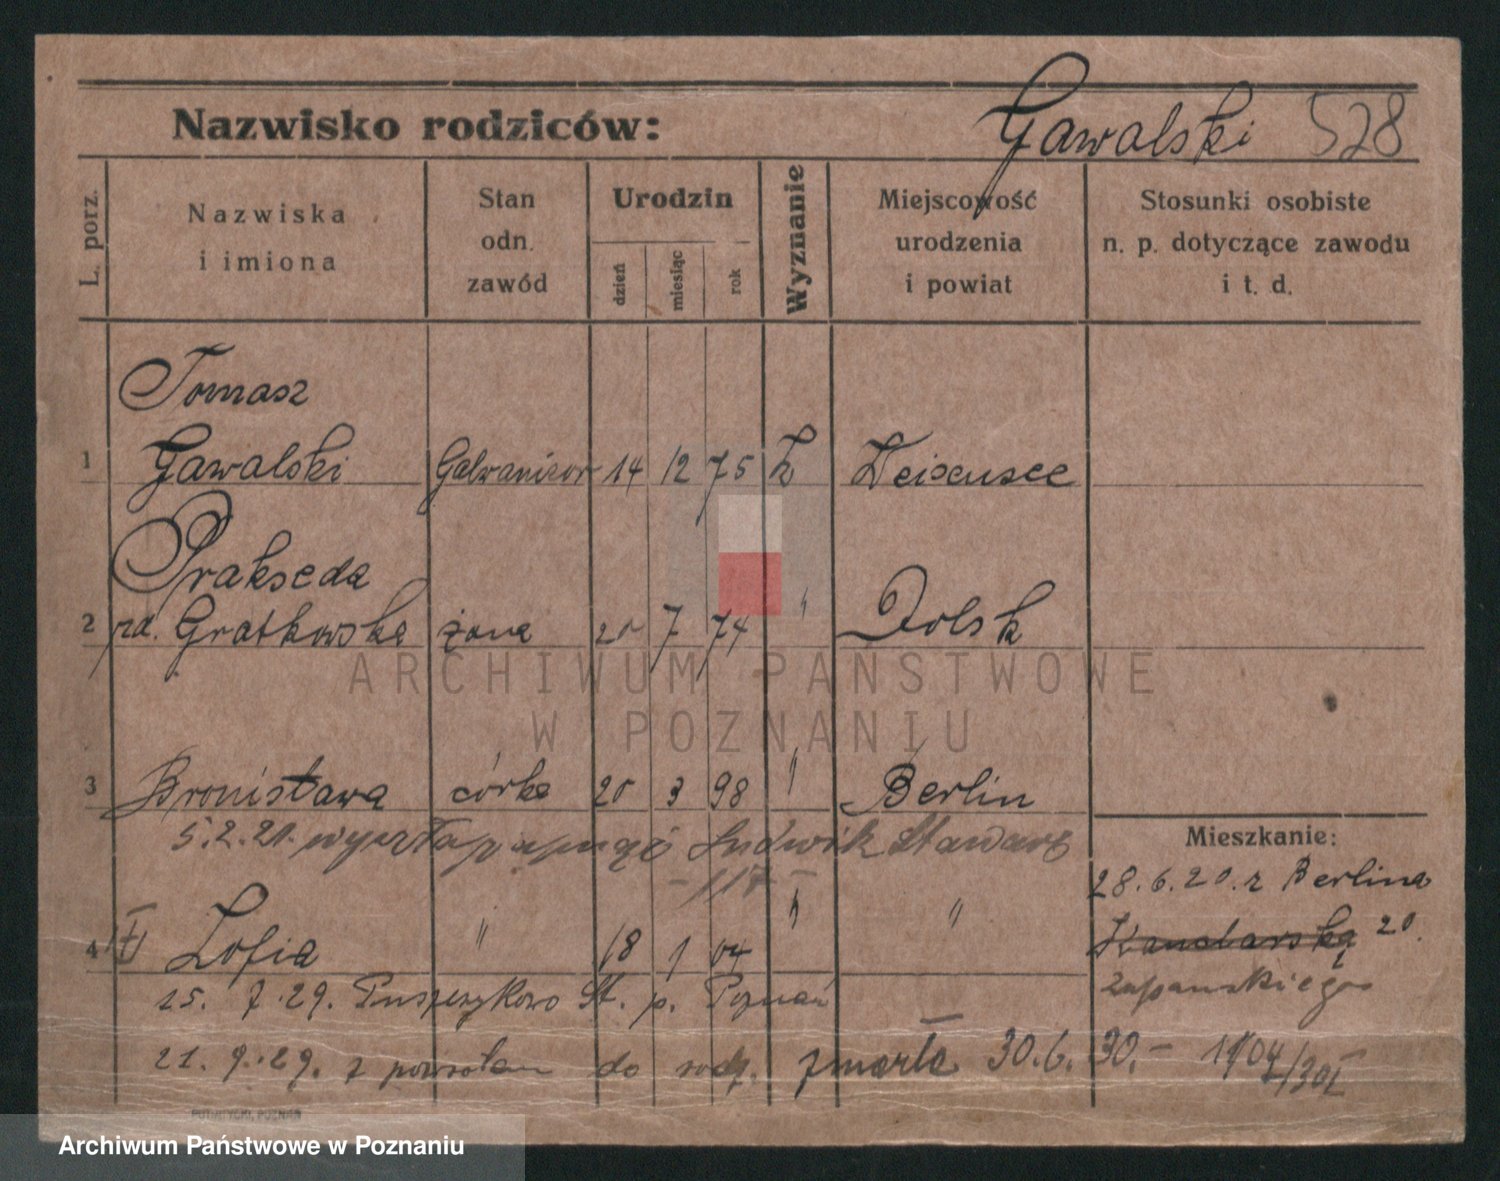 Nazwisko rodziców: Gawalski 528
L. porz.
Nazwiska i imiona
Stan odn. zawód
Urodzin
dzień
miesiąc
rok
Wyznanie
Miejscowość urodzenia i powiat
Stosunki osobiste n. p. dotyczące zawodu i t. d.
Tomasz
1 Gawalski Galwanizor 14 12 75 Weissensee
Prakseda
2 Gratkowska żona 7 74 " Dolsk
ARCHIWUM PAŃSTWOWE
W POZNANIU
3 Bronisława córka 20 3 98 " Berlin
5.2.21. Ludwik
- 117 -
Mieszkanie:
28.6.20. z Berlina
4 Zofia " 18 1 04 " "
20.
15. 7. 29. Puszczykowo p. Poznań
21. 9. 29. z do rodz. zmarła 30.6.30.-
PUTIATYCKI, POZNAŃ
Archiwum Państwowe w Poznaniu